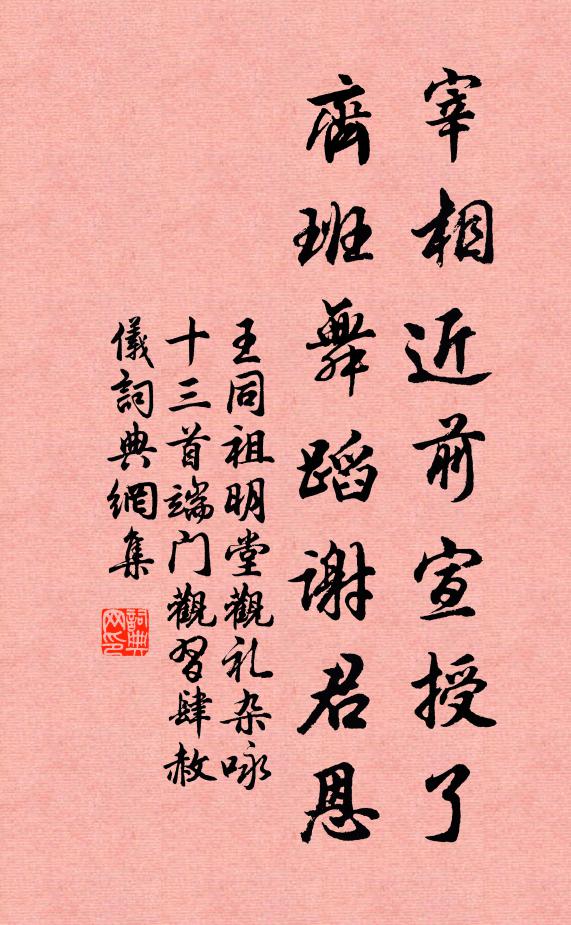 宰相近前宣授了
齊班舞蹈謝君恩
王同祖明堂觀礼杂咏
十三首端门觀習肆赦
儀詞典網集
詞典
网印